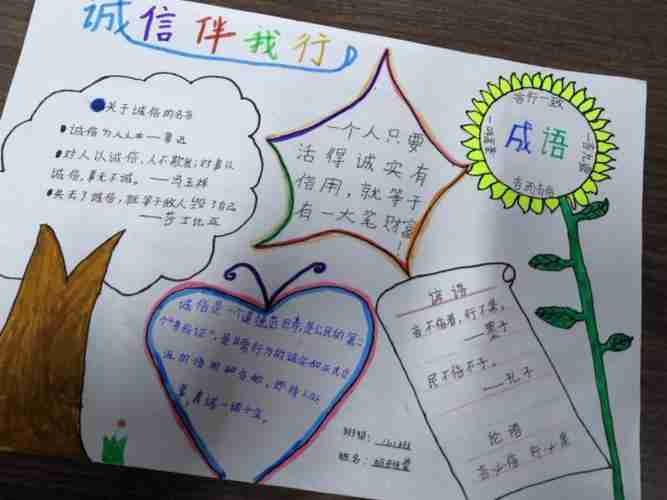 诚信伴我行
关于诚信的名言
诚信为人之本——鲁迅
对人以诚信,人不欺我;对事以
诚信,事无不成。——冯玉祥
失去了诚信,就等于敌人毁了自己
——莎士比亚
一个人只要
活得诚实有
信用,就等于
有一大笔财富!
言行一致
一言九鼎
成语
诚信是一个道德范畴,是公民的第二
个"身份证",是日常行为的诚实和正式交
流的信用的
谚语
言不信者,行不果。
——墨子
民不信不立。
——孔子
论语
言必信 行必果
班级:
姓名: